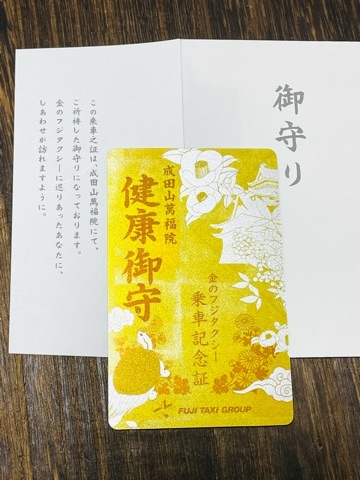 御守り
この乗車之証は、成田山萬福院にて、
ご祈祷した御守りになっております。
金のフジタクシーに巡りあったあなたに、
しあわせが訪れますように。
成田山萬福院
健康御守
金のフジタクシー
乗車記念証
FUJI TAXI GROUP